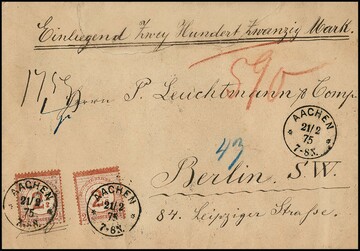 Einliegend Zwey Hundert Zwanzig Mark.
590
Herrn P. Leuchtmann & Comp.
AACHEN
21/2
75
7-8N.
43
Berlin. S.W.
84. Leipziger Straße.
AACHEN
21/2
75
7-8N.
AACHEN
21/2
75
7-8N.